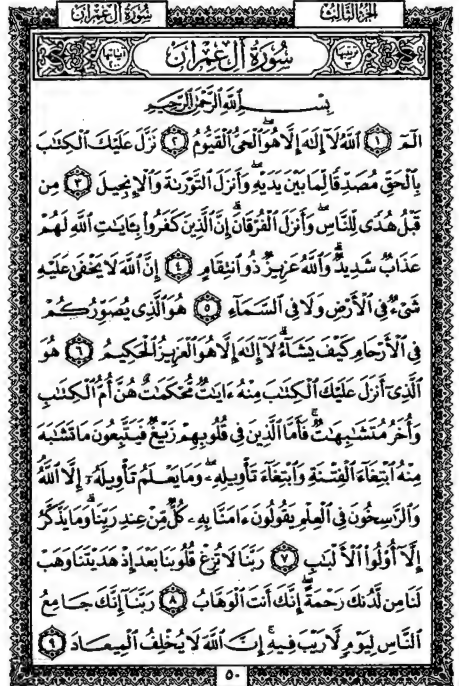 سُورَةُ آلِ عِمْرَان الجزء الثالث
سُورَةُ آلِ عِمْرَان
بِسْمِ ٱللَّهِ ٱلرَّحْمَٰنِ ٱلرَّحِيمِ
الٓمٓ ١ ٱللَّهُ لَآ إِلَٰهَ إِلَّا هُوَ ٱلْحَىُّ ٱلْقَيُّومُ ٢ نَزَّلَ عَلَيْكَ ٱلْكِتَٰبَ
بِٱلْحَقِّ مُصَدِّقًا لِّمَا بَيْنَ يَدَيْهِ وَأَنزَلَ ٱلتَّوْرَىٰةَ وَٱلْإِنجِيلَ ٣ مِن
قَبْلُ هُدًى لِّلنَّاسِ وَأَنزَلَ ٱلْفُرْقَانَ إِنَّ ٱلَّذِينَ كَفَرُوا۟ بِـَٔايَٰتِ ٱللَّهِ لَهُمْ
عَذَابٌ شَدِيدٌ وَٱللَّهُ عَزِيزٌ ذُو ٱنتِقَامٍ ٤ إِنَّ ٱللَّهَ لَا يَخْفَىٰ عَلَيْهِ
شَىْءٌ فِى ٱلْأَرْضِ وَلَا فِى ٱلسَّمَآءِ ٥ هُوَ ٱلَّذِى يُصَوِّرُكُمْ
فِى ٱلْأَرْحَامِ كَيْفَ يَشَآءُ لَآ إِلَٰهَ إِلَّا هُوَ ٱلْعَزِيزُ ٱلْحَكِيمُ ٦ هُوَ
ٱلَّذِىٓ أَنزَلَ عَلَيْكَ ٱلْكِتَٰبَ مِنْهُ ءَايَٰتٌ مُّحْكَمَٰتٌ هُنَّ أُمُّ ٱلْكِتَٰبِ
وَأُخَرُ مُتَشَٰبِهَٰتٌ فَأَمَّا ٱلَّذِينَ فِى قُلُوبِهِمْ زَيْغٌ فَيَتَّبِعُونَ مَا تَشَٰبَهَ
مِنْهُ ٱبْتِغَآءَ ٱلْفِتْنَةِ وَٱبْتِغَآءَ تَأْوِيلِهِۦ وَمَا يَعْلَمُ تَأْوِيلَهُۥٓ إِلَّا ٱللَّهُ
وَٱلرَّٰسِخُونَ فِى ٱلْعِلْمِ يَقُولُونَ ءَامَنَّا بِهِۦ كُلٌّ مِّنْ عِندِ رَبِّنَا وَمَا يَذَّكَّرُ
إِلَّآ أُو۟لُوا۟ ٱلْأَلْبَٰبِ ٧ رَبَّنَا لَا تُزِغْ قُلُوبَنَا بَعْدَ إِذْ هَدَيْتَنَا وَهَبْ
لَنَا مِن لَّدُنكَ رَحْمَةً إِنَّكَ أَنتَ ٱلْوَهَّابُ ٨ رَبَّنَآ إِنَّكَ جَامِعُ
ٱلنَّاسِ لِيَوْمٍ لَّا رَيْبَ فِيهِ إِنَّ ٱللَّهَ لَا يُخْلِفُ ٱلْمِيعَادَ ٩
٥٠